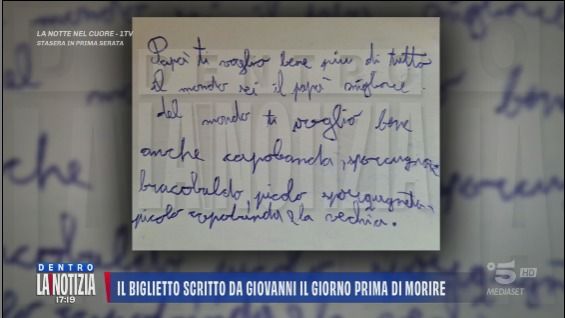 LA NOTTE NEL CUORE - 1TV
STASERA IN PRIMA SERATA
Papà ti voglio bene più di tutto
il mondo sei il papà migliore
del mondo ti voglio bene
anche capobanda,
bracobaldo picolo
picolo capobanda la vechia.
DENTRO
LA NOTIZIA
17:19
IL BIGLIETTO SCRITTO DA GIOVANNI IL GIORNO PRIMA DI MORIRE
5 HD
MEDIASET